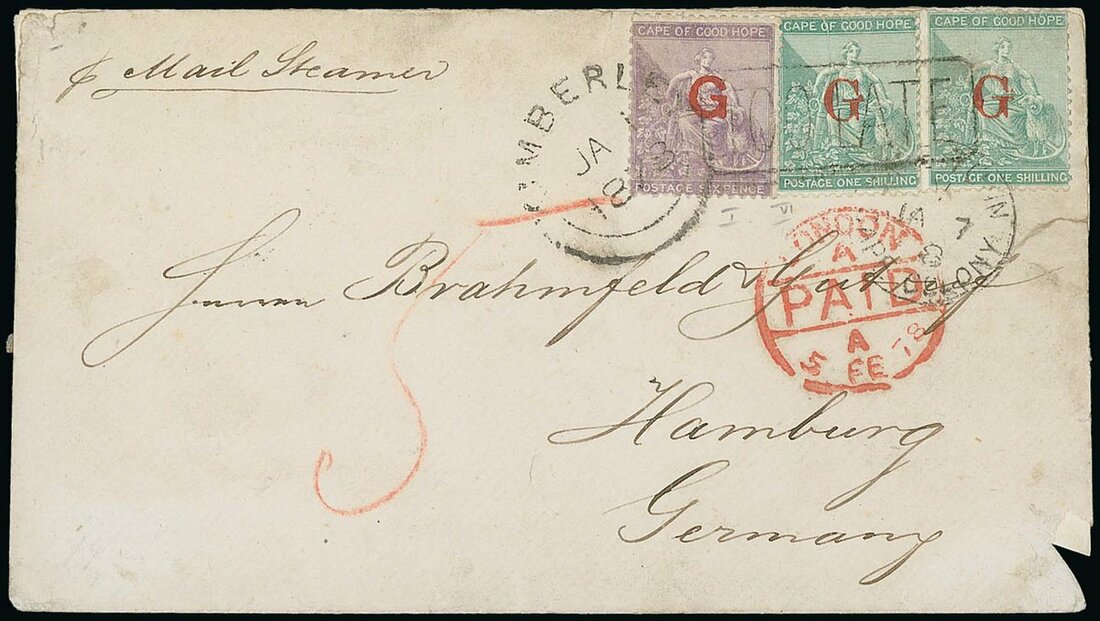 p Mail Steamer
CAPE OF GOOD HOPE
G
POSTAGE SIX PENCE
CAPE OF GOOD HOPE
G
POSTAGE ONE SHILLING
CAPE OF GOOD HOPE
G
POSTAGE ONE SHILLING
TOO LATE
JA
18
5
LONDON
A
PAID
A
5 FE 78
JA 7
COLONY
Herren Brahmfeld & Gut
Hamburg
Germany